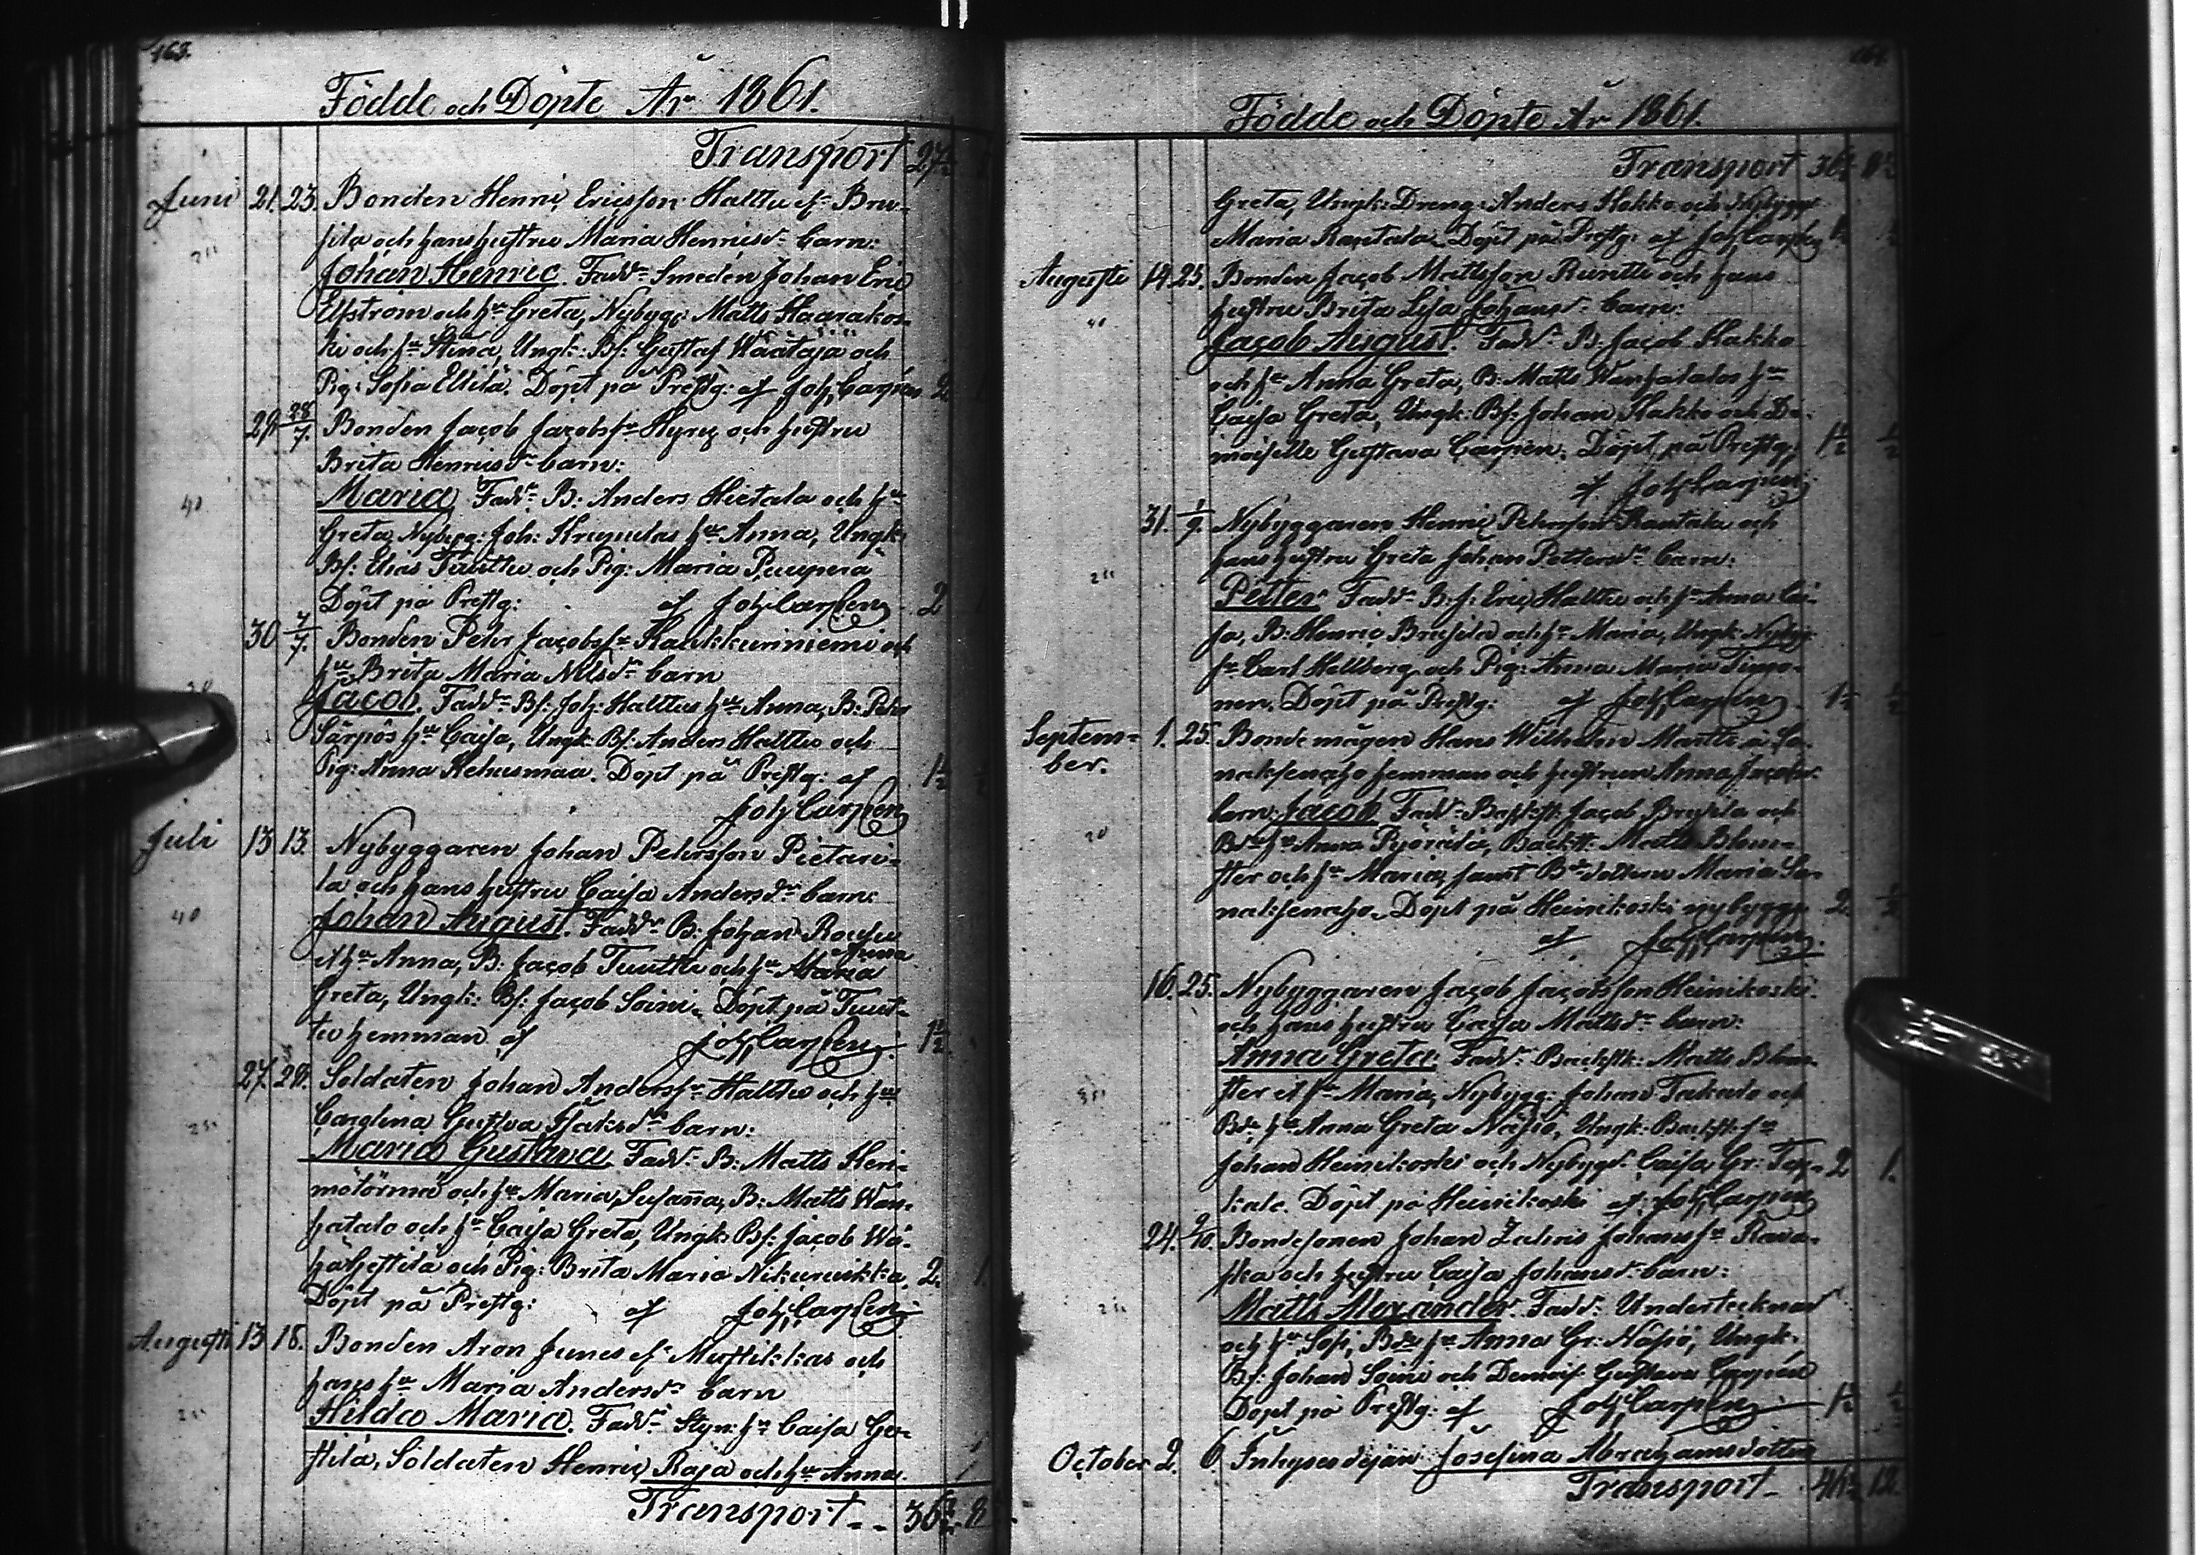 163.
Födde och Döpte År 1861.
Transport 27½
Juni 21. 23. Bonden Henric Ericsson Halttu ef. Bru-
sila och hans hustru Maria Henricsdr barn:
Johan Henric. Faddr Smeden Johan Eric
Elfström och hu Greta, Nybygg: Matts Haarakos-
ki och hu Stina, Ungk: Bs: Gustaf Wäätäjä och
Pig: Sofia Ellilä. Döpt på Prestg: af Joh. Carpén 2
29. 28/7. Bonden Jacob Jacobsn Hyry och hustru
Brita Henricsdr barn:
40
Maria, Faddr B: Anders Hietala och hu
Greta, Nybygg: Joh: hu Anna, Ungk:
Bs: Elias Tuuttu och Pig: Maria Puuperä
Döpt på Prestg: af Joh Carpén 2
30 7/7. Bonden Pehr Jacobsn Haukkaniniemi och
hu Brita Maria Nilsdr barn
Jacob. Faddr Bs: Joh: Halttus hu Anna, B: Pehr
Särpös hu Caisa, Ungk: Bs: Anders Halttu och
Pig: Anna Rehusmaa. Döpt på Prestg: af 1½
Joh Carpén
Juli 13 13. Nybyggaren Johan Pehrsson Pietari-
la och hans hustru Caisa Andersdr barn:
40
Johan August. Faddr B: Johan Rousu
et hu Anna, B: Jacob Tuuttu och hu Anna
Greta, Ungk: Bs: Jacob Soini. Döpt på Tuut-
tu hemman af Joh Carpén 1½
27. 28. Soldaten Johan Andersn Halttu och hu
Carolina Gustva Isaksdr barn:
Maria Gustava. Faddr B: Matts Heri-
mötörmä och hu Maria Susanna, B: Matts Wan-
hatalo och hu Caisa Greta, Ungk: Bs: Jacob Wä-
hähestilä och Pig: Brita Maria Nikumukka, 2. 1
Döpt på Prestg: af Joh. Carpén
Augusti 13 18. Bonden Aron Junes ef. Mustikkas och
hans hu Maria Andersdr barn
Hilda Maria. Faddr Styn: hu Caisa Ger-
ttilä, Soldaten Henric Raja och hu Anna
Transport - - 36½ 8
164
Födde och Döpte År 1861.
Transport 36½
Greta, Ungk: Dreng: Anders Hakko och Nybygg:
Maria Rantala. Döpt på Prestg: af Joh Carpén 1½ ½
Augusti 14 25. Bonden Jacob Mattsson Ruuttu och hans
40
hustru Brita Lisa Johansdr barn:
Jacob August. Faddr B: Jacob Hakko
och hu Anna Greta, B: Matts Wanhatalos hu
Caisa Greta, Ungk: Bs: Johan Hakko och De-
moiselle Gustava Carpén. Döpt på Prestg: 1½ ½
af Joh Carpén
31. 1/9. Nybyggaren Henric Pehrsson Rantala och
hans hustru Greta Johan Pettersdr barn:
Petter Faddr B: s: Eric Halttu och hu Anna Cai-
sa, B: Henric Brusila och hu Maria, Ungk: Nybyg:
sn Carl Hellberg och Pig: Anna Maria Timo-
nen. Döpt på Prestg: af Joh Carpén 1½ ½
Septem- 1. 25. Bondemågen Hans Wilhelm Martti å Sa-
ber. naksenaho hemman och hustrun Anna Jacobsdr
barn: Jacob Faddr Backstt: Jacob Brusila och
20
Bde hu Anna Pyörälä, Backst: Matts Blom-
ster och hu Maria, samt Bdedottren Maria Sa-
naksenaho. Döpt på Heinikoski nybygge 2. ½
af Joh. Carpén.
16. 25. Nybyggaren Jacob Jacobsson Heinikoski
och hans hustru Caisa Mattsdr barn:
Anna Greta. Faddr Backstt: Matts Blom-
ster et hu Maria, Nybygg: Johan Takalo och
Bde hu Anna Greta Näpiö, Ungk: Backst: sn
Johan Heinikoski och Nybygd: Caisa Gr: Ta- 2 1.
kalo. Döpt på Heinikoski af: Joh. Carpén
24. 2/10. Bondesonen Johan Zachris Johanssn Rava-
ska och hustru Caisa Johansdr barn:
Matts Alexander. Faddr: Undertecknad
och hu Sofi, Bde hu Anna Gr: Näpiö, Ungk:
Bs: Johan Soini och Demois: Gustava Carpén
Döpt på Prestg: af Joh Carpén 1½ ½
October 2. 6. Inhysesdejan Josefina Abrahamsdotter
Transport - 46½ 12.